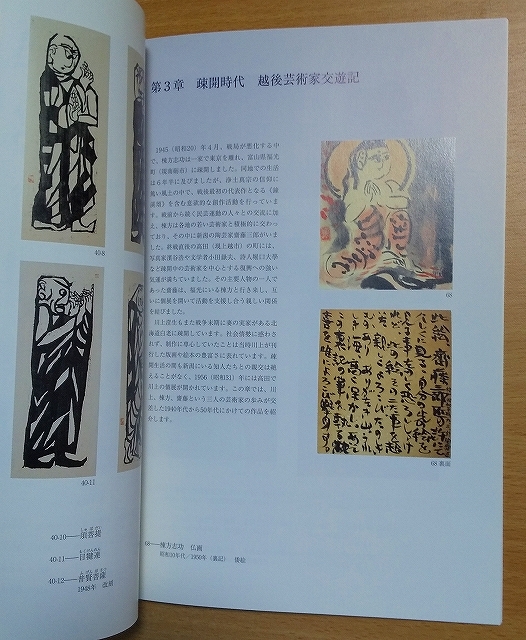 40-8
40-11
40-10——須菩提
40-11——目犍連
40-12——普賢菩薩
1948年 改刻
第3章 疎開時代 越後芸術家交遊記
1945(昭和20)年4月、戦局が悪化する中
で、棟方志功は一家で東京を離れ、富山県福光
町(現南砺市)に疎開しました。同地での生活
は6年半に及びましたが、浄土真宗の信仰に
篤い風土の中で、戦後最初の代表作となる《鐘
渓頌》を含む意欲的な創作活動を行っていま
す。戦前から続く民芸運動の人々との交流に加
え、棟方は各地の若い芸術家と積極的に交わっ
ており、その中に新潟の陶芸家齋藤三郎がいま
した。終戦直後の高田(現上越市)の町には、
写真家濱谷浩や文学者小田嶽夫、詩人堀口大學
など疎開中の芸術家を中心とする復興への強い
気運が満ちていました。その主要人物の一人で
あった齋藤は、福光にいる棟方と行き来し、互
いに個展を開いて活動を支援し合う親しい関係
を結びました。
川上澄生もまた戦争末期に妻の実家がある北
海道白老に疎開しています。社会情勢に惑わさ
れず、制作に専心していたことは当時川上が刊
行した版画や絵本の豊富さに表れています。疎
開生活の間も新潟にいる知人たちとの親交は絶
えることがなく、1956(昭和31)年には高田で
川上の個展が開かれています。この章では、川
上、棟方、齋藤という三人の芸術家の歩みが交
差した1940年代から50年代にかけての作品を紹
介します。
68
68 裏面
68——棟方志功 仏画
昭和10年代/1950年(裏記) 倭絵